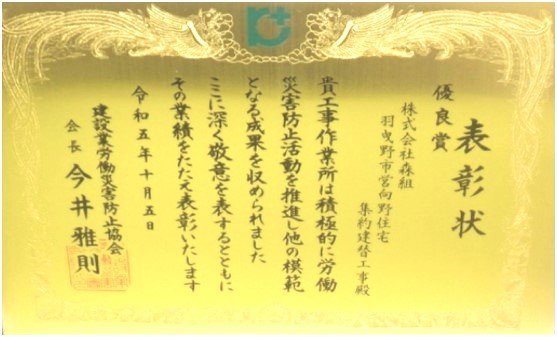 表彰状
優良賞
株式会社森組
羽曳野市営向野住宅
集約建替工事殿
貴工事作業所は積極的に労働
災害防止活動を推進し他の模範
となる成果を収められました
ここに深く敬意を表するとともに
その業績をたたえ表彰いたします
令和五年十月五日
建設業労働災害防止協会
会長 今井雅則